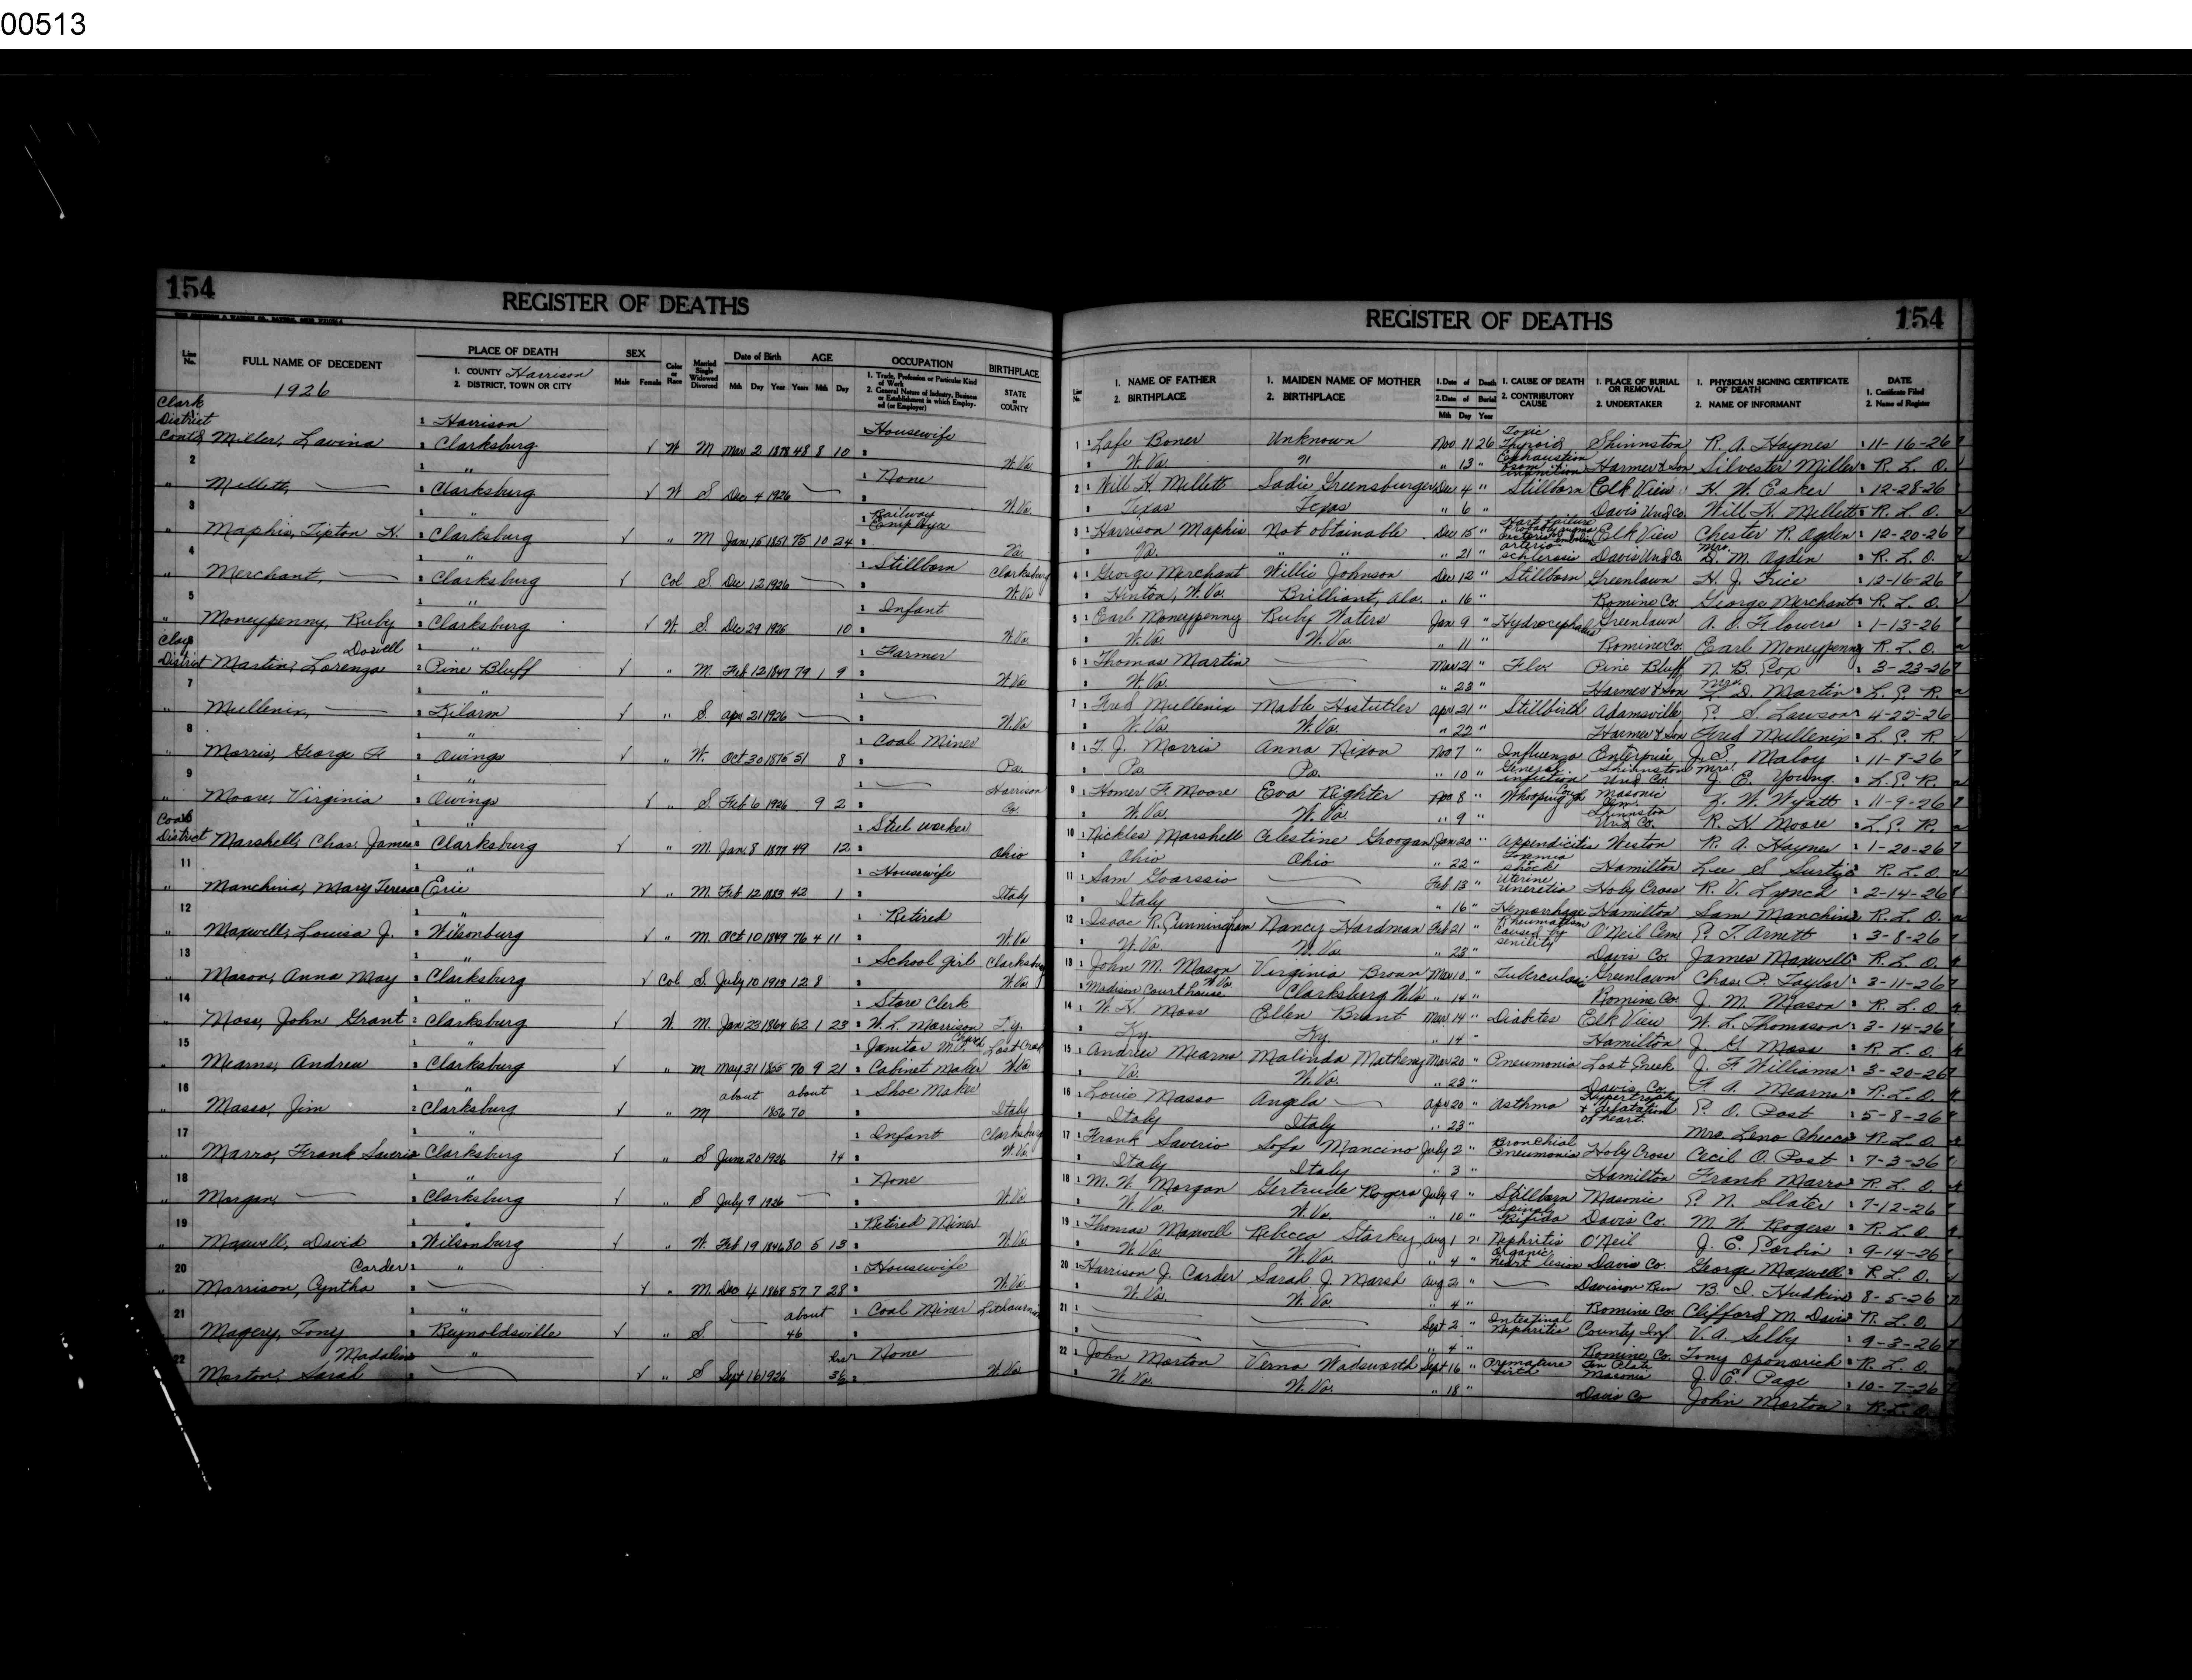 00513
154
REGISTER OF DEATHS
Line No. FULL NAME OF DECEDENT PLACE OF DEATH 1. COUNTY Harrison 2. DISTRICT, TOWN OR CITY SEX Male Female Color or Race Married Single Widowed Divorced Date of Birth Mth Day Year AGE Years Mth Day OCCUPATION 1. Trade, Profession or Particular Kind of Work 2. General Nature of Industry, Business or Establishment in which Employed (or Employer) BIRTHPLACE STATE or COUNTY
1926
Clark District Cont'd Miller, Lavina 1 Harrison 2 Clarksburg √ W M Mar 2 1878 48 8 10 Housewife W.Va.
2 " Millett, — Clarksburg √ W S Dec 4 1926 — None W.Va.
3 " Maphis, Tipton H. Clarksburg √ " M Jan 15 1851 75 10 24 Railway Employee Va.
4 " Merchant, — Clarksburg √ Col S Dec 12 1926 — Stillborn Clarksburg W.Va
5 " Moneypenny, Ruby Clarksburg √ W. S. Dec 29 1925 10 Infant W.Va.
Clay District Martin, Lorenzo Dowell Pine Bluff √ " M. Feb 12 1847 79 1 9 Farmer W.Va
7 " Mullenix, — Kilarm √ " S. Apr 21 1926 — W.Va.
8 " Morris, George F Owings √ " W. Oct 30 1875 51 8 Coal Miner Pa.
9 " Moore, Virginia Owings √ " S Feb 6 1926 9 2 — Harrison Co.
Coal District Marshell, Chas. James Clarksburg √ " M. Jan 8 1877 49 12 Steel worker Ohio
11 " Manchina, Mary Teresa Erie √ " M Feb 12 1883 42 1 Housewife Italy
12 " Maxwell, Louisa J. Wilsonburg √ " M. Oct 10 1849 76 4 11 Retired W.Va
13 " Mason, Anna May Clarksburg √ Col S. July 10 1913 12 8 School girl Clarksburg W.Va
14 " Moss, John Grant Clarksburg √ W M. Jan 23 1864 62 1 23 Store Clerk W.L. Morrison Ky.
15 " Mearns, Andrew Clarksburg √ " M May 31 1855 70 9 21 Janitor M.P. Church Cabinet Maker Lost Creek W.Va
16 " Masso, Jim Clarksburg √ " M about 1856 about 70 Shoe Maker Italy
17 " Marro, Frank Saverio Clarksburg √ " S June 20 1926 14 Infant Clarksburg W.Va
18 " Morgan — Clarksburg √ " S July 9 1926 — None W.Va.
19 " Maxwell, David Wilsonburg √ " W. Feb 19 1846 80 5 13 Retired Miner W.Va.
20 " Morrison, Cyntha Carder — √ " M. Dec 4 1868 57 7 28 Housewife W.Va.
21 Magery, Tony Reynoldsville √ " S. — about 46 Coal Miner
22 Morton, Sarah Madaline — √ " S Sept 16 1926 36 hrs None W.Va.
154
REGISTER OF DEATHS
Line No. 1. NAME OF FATHER 2. BIRTHPLACE 1. MAIDEN NAME OF MOTHER 2. BIRTHPLACE 1. Date of Death 2. Date of Burial Mth Day Year 1. CAUSE OF DEATH 2. CONTRIBUTORY CAUSE 1. PLACE OF BURIAL OR REMOVAL 2. UNDERTAKER 1. PHYSICIAN SIGNING CERTIFICATE OF DEATH 2. NAME OF INFORMANT DATE 1. Certificate Filed 2. Name of Register
1 Lafe Boner Unknown Nov 11 26 Toxic Thyroid Shinnston R. A. Haynes 11-16-26
W.Va. " " 13 " Exhaustion from inanition Harmer & Son Silvester Miller R. L. O.
2 Will H. Millett Sadie Greensburger Dec 4 " Stillborn Elk View H. W. Esker 12-28-26
Texas Texas " 6 " Davis Und Co. Will H. Millett R. L. O.
3 Harrison Maphis Not obtainable Dec 15 " Elk View Chester R. Ogden 12-20-26
Va. " " " 21 " arterio sclerosis Davis Und Co. Mrs. D. M. Ogden R. L. O.
4 George Merchant Willie Johnson Dec 12 " Stillborn Greenlawn H. J. 12-16-26
Hinton, W.Va. Brilliant, Ala. " 16 " Romine Co. George Merchant R. L. O.
5 Earl Moneypenny Ruby Waters Jan 9 " Hydrocephalus Greenlawn A. O. Flowers 1-13-26
W.Va. W.Va. " 11 " Romine Co. Earl Moneypenny R. L. O.
6 Thomas Martin — Mar 21 " Flu Pine Bluff N. B. Cox 3-23-26
W.Va. — " 23 " Harmer & Son Mrs. L. D. Martin L. C. R.
7 Fred Mullenix Mable Hostutler Apr 21 " Stillbirth Adamsville C. S. Lawson 4-22-26
W.Va. W.Va. " 22 " Harmer & Son Fred Mullenix L. C. R
8 T. J. Morris Anna Nixon Nov 7 " Influenza Enterprise J. S. Maloy 11-9-26
Pa. Pa. " 10 " General infection Shinnston Und. Co. Mrs. J. E. Young L. C. R.
9 Homer F. Moore Eva Righter Nov 8 " Whooping Cough Masonic Cem. Z. W. Wyatt 11-9-26
W.Va. W.Va. " 9 " Shinnston Und Co. R. H. Moore L. C. R.
10 Nickles Marshell Celestine Groogan Jan 20 " Appendicites Weston R. A. Haynes 1-20-26
Ohio Ohio " 22 " shock Hamilton R. L. O.
11 Sam — Feb 13 " Uterine Holy Cross R. V. Lynch 2-14-26
Italy — " 16 " Hemorrhage Hamilton Sam Manchina R. L. O.
12 Isaac R. Cunningham Nancy Hardman Feb 21 " Rheumatism caused by senility O'Neil Cem. C. T. Arnett 3-8-26
W.Va. W.Va. " 23 " Davis Co. James Maxwell R. L. O.
13 John M. Mason Virginia Brown Mar 10 " Tuberculosis Greenlawn Chas. P. Taylor 3-11-26
Madison Courthouse W.Va. Clarksburg W.Va " 14 " Romine Co. J. M. Mason R. L. O
14 W. H. Moss Ellen Brant Mar 14 " Diabetes Elk View W. L. Thomason 3-14-26
Ky. Ky. " 14 " Hamilton J. G. Moss R. L. O.
15 Andrew Mearns Malinda Matheny Mar 20 " Pneumonia Lost Creek J. F. Williams 3-20-26
Va. W.Va. " 23 " Davis Co. F. A. Mearns R. L. O.
16 Louie Masso Angela — Apr 20 " Asthma Hypertrophy & dilatation of heart. C. O. Post 5-8-26
Italy Italy " 23 " Mrs. Leno Checco R. L. O.
17 Frank Saverio Sofa Mancino July 2 " Bronchial Pneumonia Holy Cross Cecil O. Post 7-3-26
Italy Italy " 3 " Hamilton Frank Marro R. L. O.
18 M. W. Morgan Gertrude Rogers July 9 " Stillborn Masonic C. N. Slater 7-12-26
W.Va. W.Va. " 10 " Spinal Bifida Davis Co. M. W. Rogers R. L. O
19 Thomas Maxwell Rebecca Starkey Aug 1 " Nephritis O'Neil J. E. Corbin 9-14-26
W.Va. W.Va. " 4 " Organic heart lesion Davis Co. George Maxwell R. L. O.
20 Harrison J. Carder Sarah J. Marsh Aug 2 " — Davisson Run B. I. Hudkins 8-5-26
W.Va. W.Va " 4 " Romine Co. Clifford M. Davis R. L. O.
21 — — Sept 2 " Intestinal Nephritis County Inf. V. A. Selby 9-3-26
— — " 4 " Romine Co. Tony R. L. O.
22 John Morton Verna Wadsworth Sept 16 " Premature birth Masonic J. E. Page 10-7-26
W.Va. W.Va. " 18 " Davis Co John Morton R. L. O.